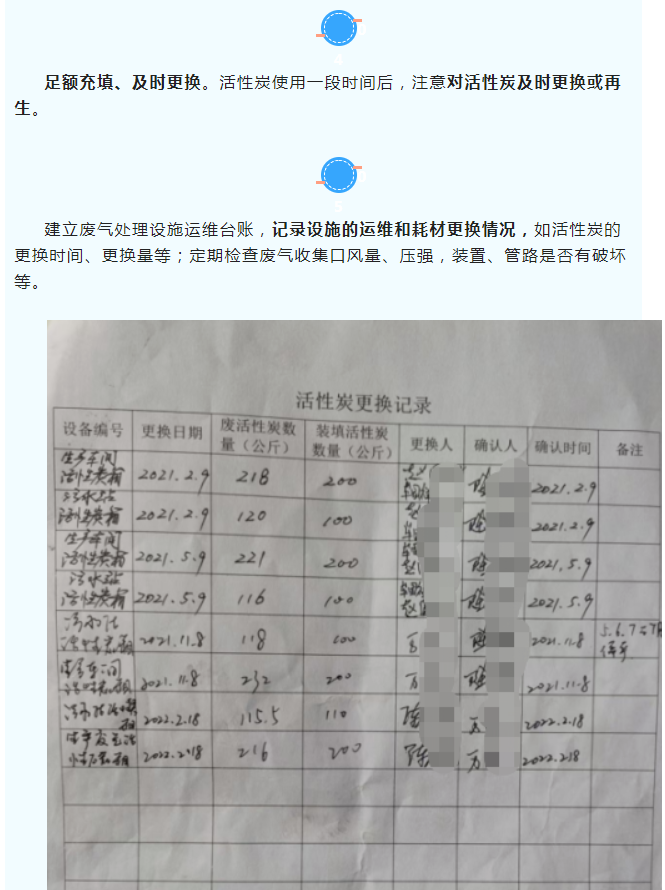 足额充填、及时更换。活性炭使用一段时间后，注意对活性炭及时更换或再
生。
建立废气处理设施运维台账，记录设施的运维和耗材更换情况，如活性炭的
更换时间、更换量等；定期检查废气收集口风量、压强，装置、管路是否有破坏
等。
活性炭更换记录
设备编号 更换日期 废活性炭数量（公斤） 装填活性炭数量（公斤） 更换人 确认人 确认时间 备注
生产车间活性炭箱 2021.2.9 218 200 2021.2.9
污水站活性炭箱 2021.2.9 120 100 2021.2.9
生产车间活性炭箱 2021.5.9 221 200 2021.5.9
污水站活性炭箱 2021.5.9 116 100 2021.5.9
2021.11.8 118 100 万 2021.11.8 5.6.7
生产车间 2021.11.8 232 200 万 2021.11.8
2022.2.18 115.5 110 陈 万 2022.2.18
2022.2.18 216 200 陈 万 2022.2.18